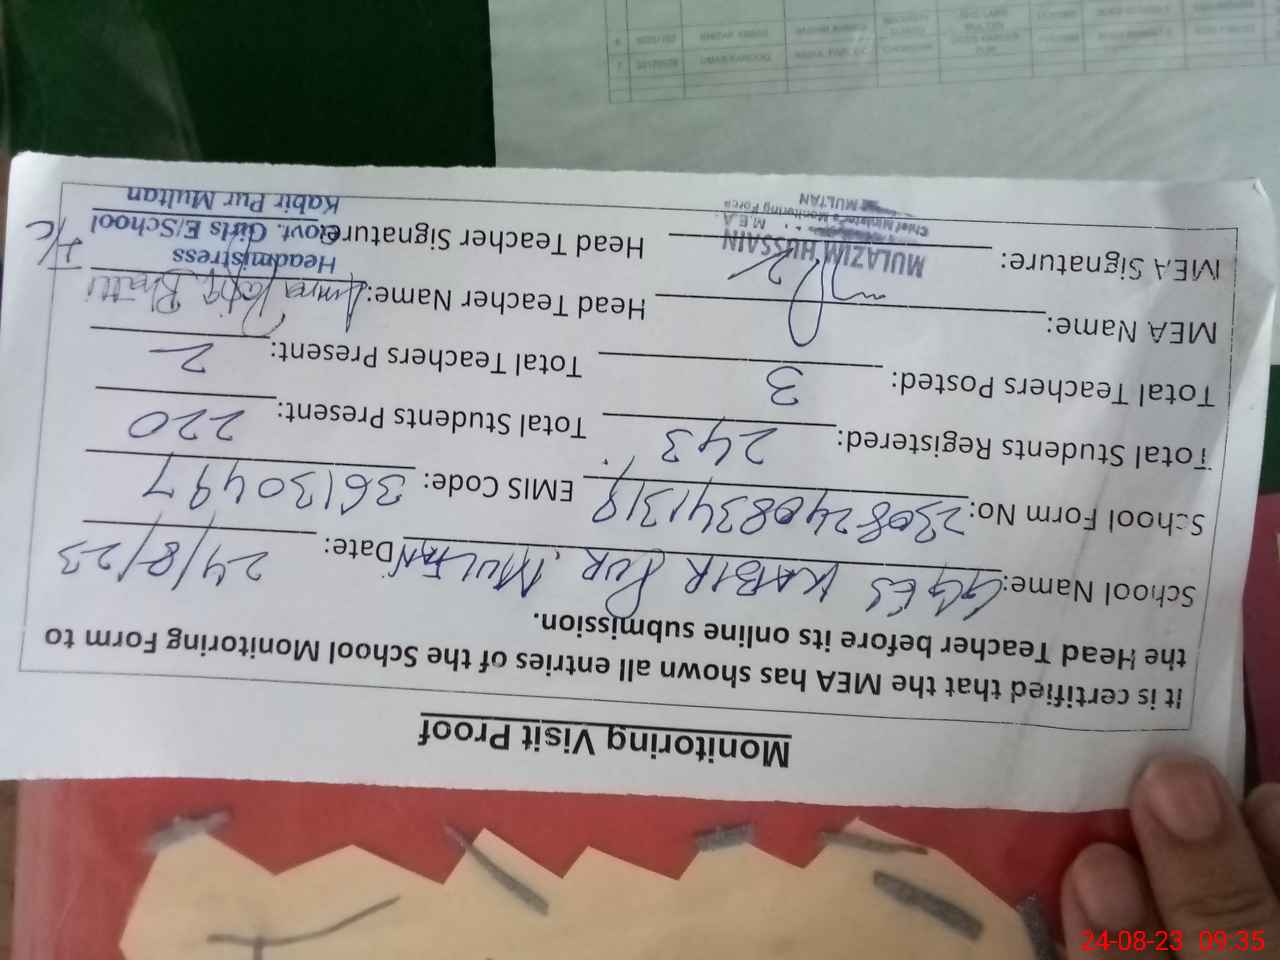 Monitoring Visit Proof
It is certified that the MEA has shown all entries of the School Monitoring Form to
the Head Teacher before its online submission.
School Name: GGES KABIR PUR, MULTAN Date: 24/8/23
School Form No: 23082408341319 EMIS Code: 36130497
Total Students Registered: 243 Total Students Present: 220
Total Teachers Posted: 3 Total Teachers Present: 2
MEA Name: Head Teacher Name: Bhatti
MEA Signature: Head Teacher Signature
MULAZIM HUSSAIN
M.E.A
Chief Minister's Monitoring Force
MULTAN
Headmistress I/C
Govt. Girls E/School
Kabir Pur Multan
24-08-23 09:35